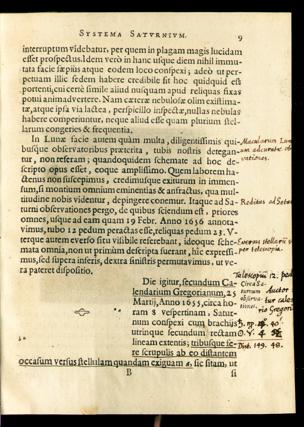 SYSTEMA SATVRNIVM. 9
interruptum videbatur, per quem in plagam magis lucidam
esset prospectus. Idem verò in hanc usque diem nihil immu-
tata facie sæpius atque eodem loco conspexi; adeò ut per-
petuam illic sedem habere credibile sit hoc quidquid est
portenti, cui certè simile aliud nusquam apud reliquas fixas
potui animadvertere. Nam cæteræ nebulosæ olim existima-
tæ, atque ipsa via lactea, perspicillo inspectæ, nullas nebulas
habere comperiuntur, neque aliud esse quam plurium stel-
larum congeries & frequentia.
In Lunæ facie autem quàm multa, diligentissimis qui-
busque observatoribus præterita, tubis nostris detegan-
tur, non referam; quandoquidem schemate ad hoc de-
scripto opus esset, eoque amplissimo. Quem laborem ha-
ctenus non suscepimus, credimusque exiturum in immen-
sum, si montium omnium eminentias & anfractus, qua mul-
titudine nobis videntur, depingere conemur. Itaque ad Sa-
turni observationes pergo, de quibus sciendum est, priores
omnes, usque ad eam quam 19 Febr. Anno 1656 annota-
vimus, tubo 12 pedum peractas esse, reliquas pedum 23. V-
terque autem everso situ visibile referebant, ideoque sche-
mata omnia, non ut primùm descripta fuerant, hic expressi-
mus, sed supera inferis, dextra sinistris permutavimus, ut ve-
ra pateret dispositio.
Die igitur, secundum Ca-
lendarium Gregorianum, 25
Martij, Anno 1655, circa ho-
ram 8 vespertinam, Satur-
num conspexi cum brachijs
utrinque secundum rectam
lineam extentis; tribusque fe-
re scrupulis ab eo distantem
occasum versus stellulam quandam exiguam a, sic sitam, ut
B si
Macularum Lun
Reditus ad Satur
per telescopia.
Telescopii 12. ped
Circa Sa-
turnum Auctor
observa-
rio Gregori
Dist. 149. 48.